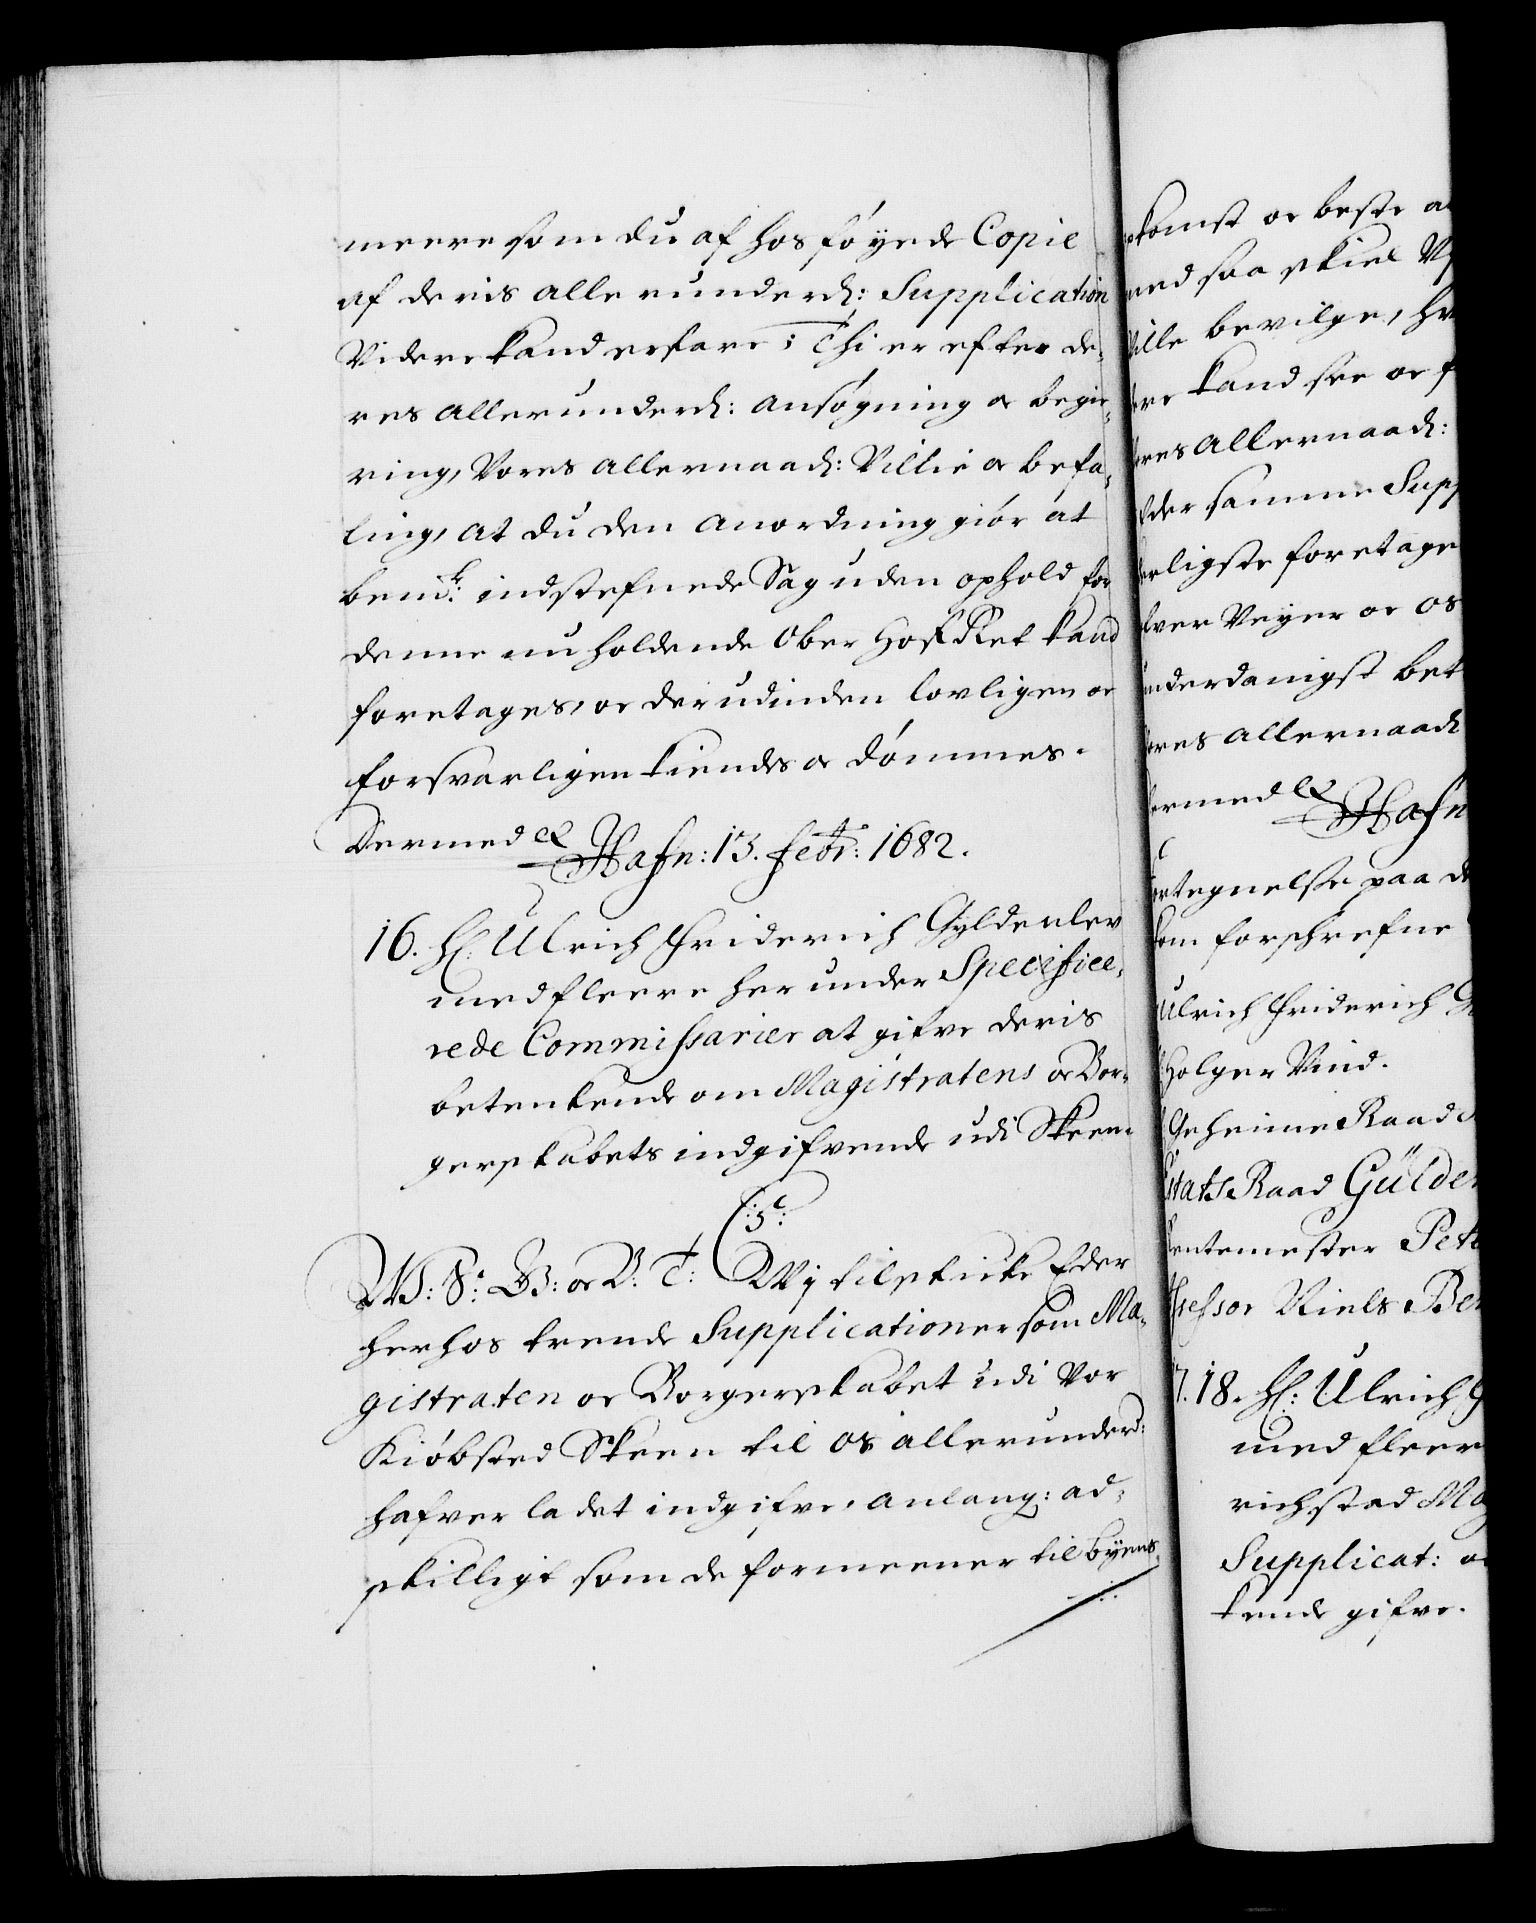 meere som du af hosføyede Copie
af deris allerunderd: Supplication
Videre kand erfare; Thi er efter de,
res allerunderd: ansøgning oc begie,
ring, Vores allernaad: Villie oc befa,
ling, at du den anordning giør at
bem:te indstefnede Sag uden ophold for
denne nu holdende Ober Hof Ret kand
foretages, oc derudinden lovligen oc
forsvarligen kiendes oc dømmes.
Dermed &c Hafn: 13. febr: 1682.
16. H: Ulrich Friderich Gyldenlev
med fleere her under Specifice,
rede Commissarier at gifve deris
betenkende om Magistratens oc Bor,
gerskabets indgifvende udi Skeen.
C: 5:
W: S: G: oc V: T: Wj tilskicke Eder
herhos trende Supplicationer som Ma,
gistraten oc Borgerskabet udi Vor
Kiøbsted Skeen til os allerunderd:
hafver ladet indgifve, anlang: ad,
skilligt som de formeener til byens
komst oc beste
med saa skiel
Ville bevilge,
kand see oc
Vores allernaad:
Eder samme Supp
ligste foretage
Veyer oc os
underdanigst bet
Vores allernaad
Dermed &c Hafn
Fortegnelse paa
som forskrefne
Ulrich Friderich
Holger Vind.
Geheime Raad
Etats Raad Gülden
Rentemester Pet
Assessor Niels Ben
17. 18. H: Ulrich
med fleer
richstad
Supplicat:
kende gifve.